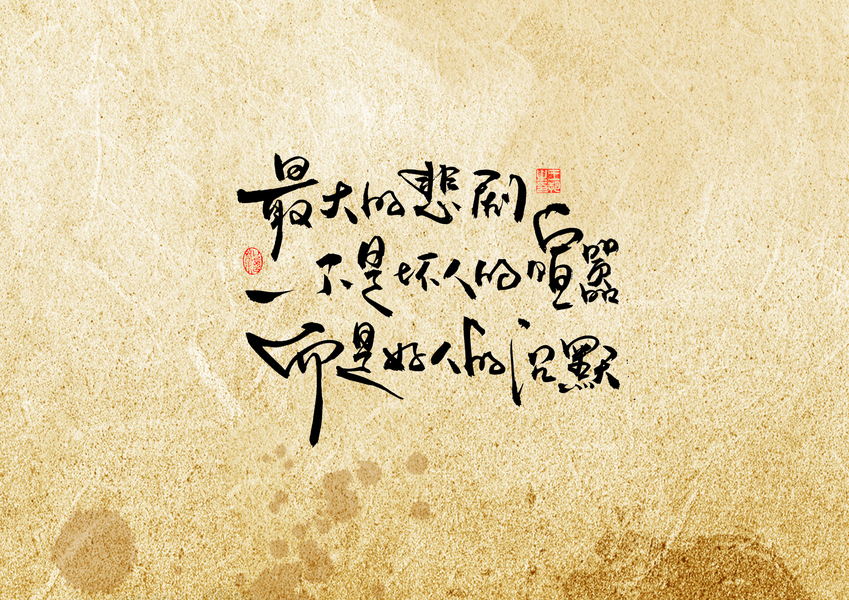 最大的悲剧
不是坏人的喧嚣
而是好人的沉默